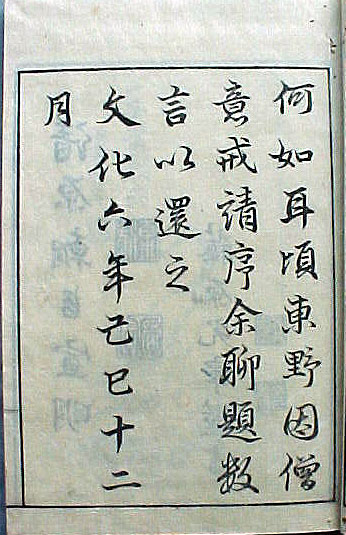 何如耳頃東野因僧
意戒請序余聊題数
言以還之
文化六年己巳十二
月